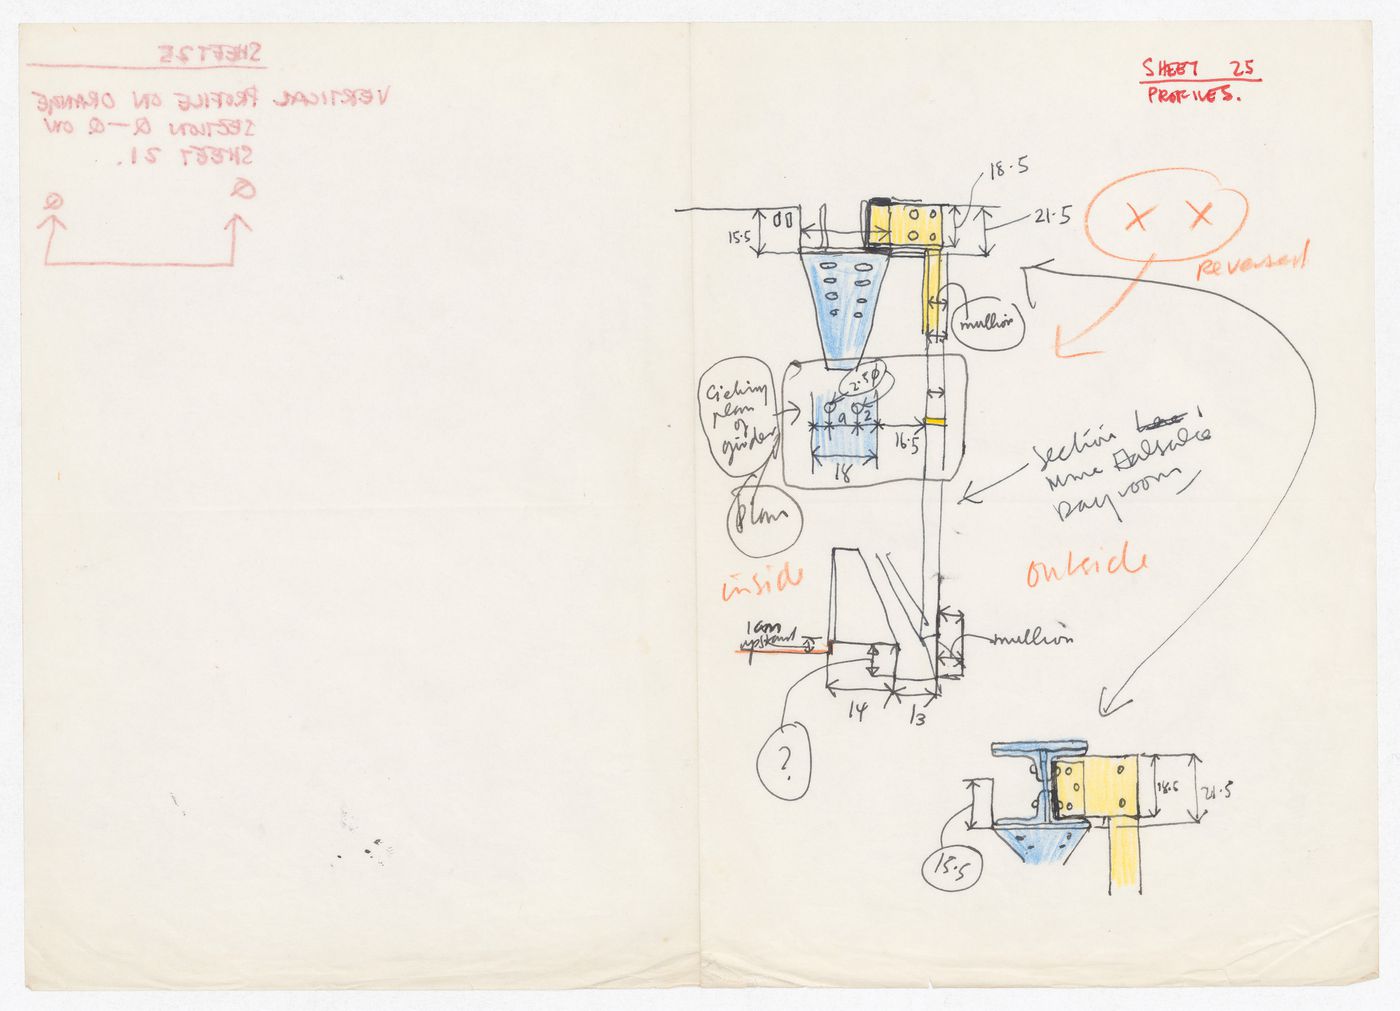 SHEET 25
VERTICAL PROFILE ON ORANGE
SECTION Q-Q ON
SHEET 21.
Q
Q
SHEET 25
PROFILES.
18.5
21.5
15.5
X X
reversed
mullion
2.5Ø
plan
of
girder
9
2
16.5
18
plan
section
Dayroom
inside
outside
1cm
upstand
mullion
14
13
?
18.5
21.5
15.5